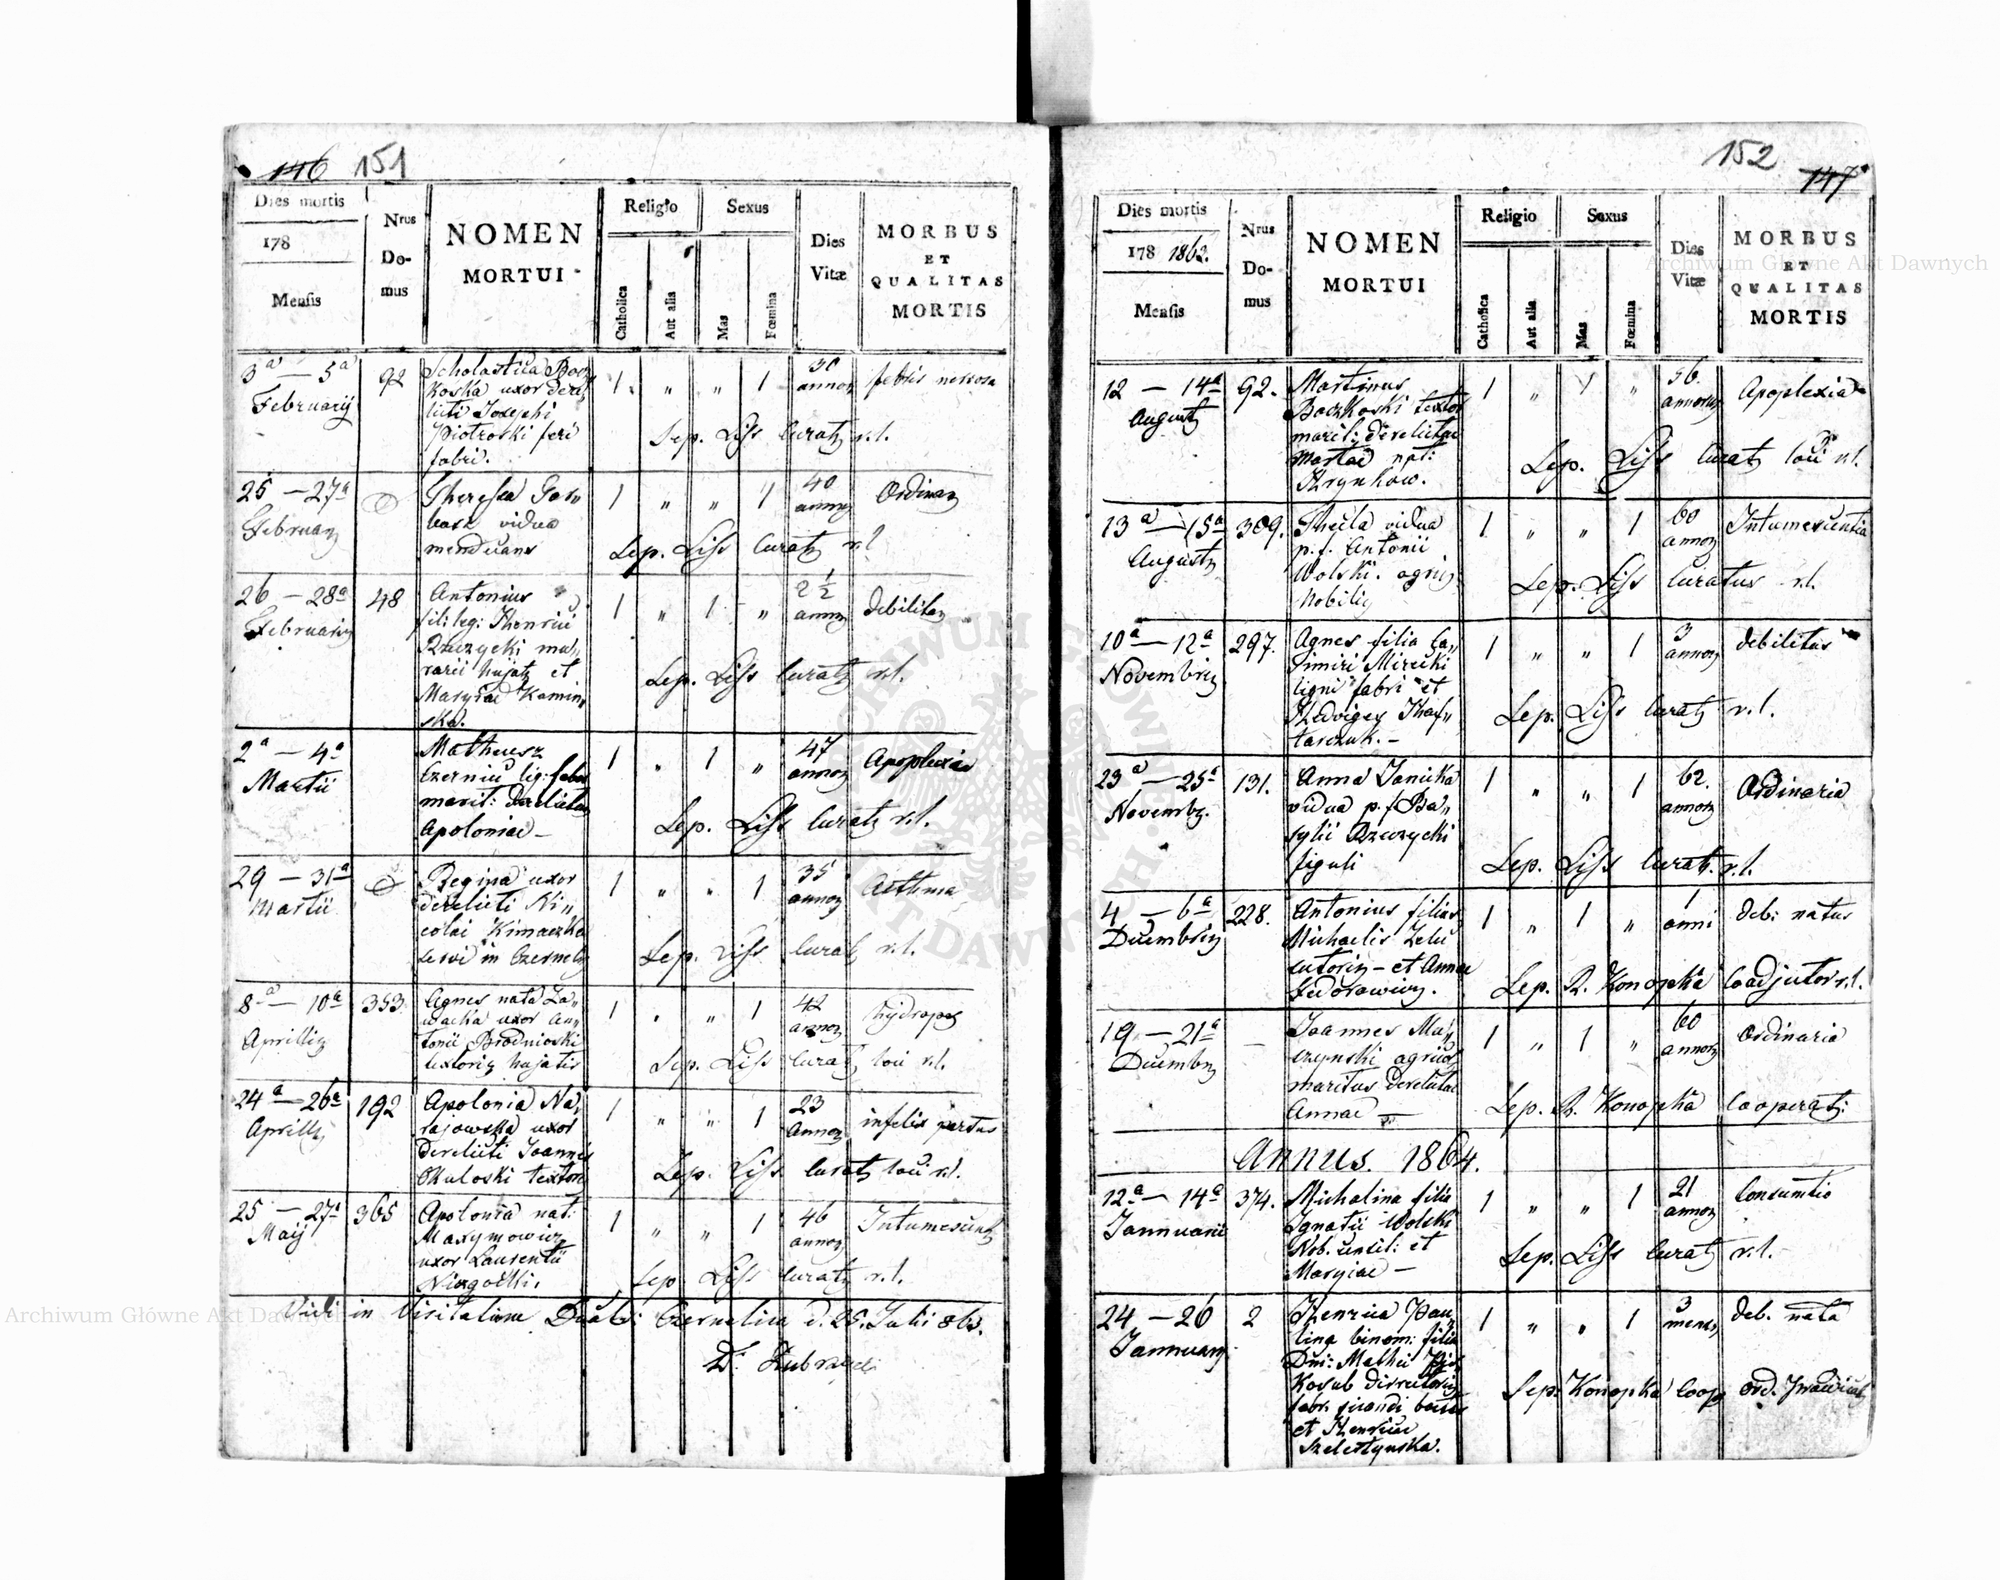 146 151
Dies mortis
178
Mensis
Nrus
Do-
mus
NOMEN
MORTUI
Religio
Catholica
Aut alia
Sexus
Mas
Fœmina
Dies
Vitæ
MORBUS
ET
QUALITAS
MORTIS
3ª — 5ª
Februarij
92
Scholastica Bocz
koska uxor dere
licti Josephi
Piotroski feri
fabri.
1 " " 1
30
annor
febris nervosa
Sep. Liss Curat r.l.
25 — 27ª
Februar
Theresia Gar„
barz vidua
mendicans
1 " " 1
40
annor
Ordinar
Sep. Liss Curat r.l
26 — 28ª
Februarii
48
Antonius
fil: leg: Henrici
Rzeczycki mu„
rarii hujat et
Maryiae Kamin„
ska.
1 " 1 "
2 1/2
annor
debilitas
Sep. Liss Curat r.l.
2ª — 4ª
Martii
Matheusz
Czernicki lig: faber
marit: derelictae
Apoloniae —
1 " 1 "
47
annor
Apoplexia
Sep. Liss Curat r.l.
29 — 31ª
Martii
Regina uxor
derelicti Ni„
colai Kimaczka
servi in Czernelic
1 " " 1
35
annor
Asthma
Sep. Liss Curat r.l.
8ª — 10ª
Aprillis
353.
Agnes nata Za„
wacka uxor An„
tonii Brodnioski
textoris hujatis
1 " " 1
42
annor
hydrops
Sep. Liss Curat loci r.l.
24ª — 26ª
Aprillis
192
Apolonia Na„
rajowska uxor
derelicti Joannis
Okuloski textoris
1 " " 1
23
annor
infelix partus
Sep. Liss Curat loci r.l.
25 — 27ª
Maij
365
Apolonia nat:
Maxymowicz
uxor Laurentii
Niezgodki.
1 " " 1
46
annor
Intumescent
Sep Liss Curat r.l.
Vidi in Visitatione Decali Czernelica d. 25. Julii 863.
152 147
Dies mortis
178 1862.
Mensis
Nrus
Do-
mus
NOMEN
MORTUI
Religio
Catholica
Aut alia
Sexus
Mas
Fœmina
Dies
Vitæ
MORBUS
ET
QUALITAS
MORTIS
12 — 14ª
August
92.
Martinus
Boczkoski textor
marit: derelictae
Martae nat:
Hrynkow.
1 " 1 "
56.
annorum
Apoplexia
Sep. Liss Curat loci r.l.
13ª — 15ª
Augusti
309.
Thecla vidua
p.f. Antonii
Wolski. agric
Nobilis
1 " " 1
60
annor
Intumescentia
Sep. Liss Curatus r.l.
10ª — 12ª
Novembris
297.
Agnes filia Ca„
simiri Mirecki
ligni fabri et
Hedviges Haf„
tarczuk. —
1 " " 1
3
annor
debilitas
Sep. Liss Curat r.l.
23ª — 25ª
Novembr.
131.
Anna Janicka
vidua p.f. Ba„
sylii Rzeczycki
figuli
1 " " 1
62.
annor
Ordinaria
Sep. Liss Curat. r.l.
4 — 6ª
Decembris
228.
Antonius filius
Michaelis Zele
sutoris — et Annae
Fedorowicz.
1 " 1 "
1
anni
deb: natus
Sep. R. Konopka Coadjutor r.l.
19 — 21ª
Decembr
—
Joannes Ma„
czynski agricola
maritus derelictae
Annae —
1 " 1 "
60
annor
Ordinaria
Sep. R. Konopka Cooperat:
Annus. 1864.
12ª — 14ª
Januarii
374.
Michalina filia
Ignatii Wolski
Nob. et
Maryiae —
1 " " 1
21
annor
Consumtio
Sep. Liss Curat r.l.
24 — 26
Januar
2
Henrica Pau„
lina binom: filia
Dni: Mathei
Kosub directoris
fabr.
et Henricae
Szelestynska.
1 " " 1
3
mens
deb. nata
Sep. Konopka Coop
Archiwum Główne Akt Dawnych
Archiwum Główne Akt Dawnych
ARCHIWUM GŁÓWNE AKT DAWNYCH